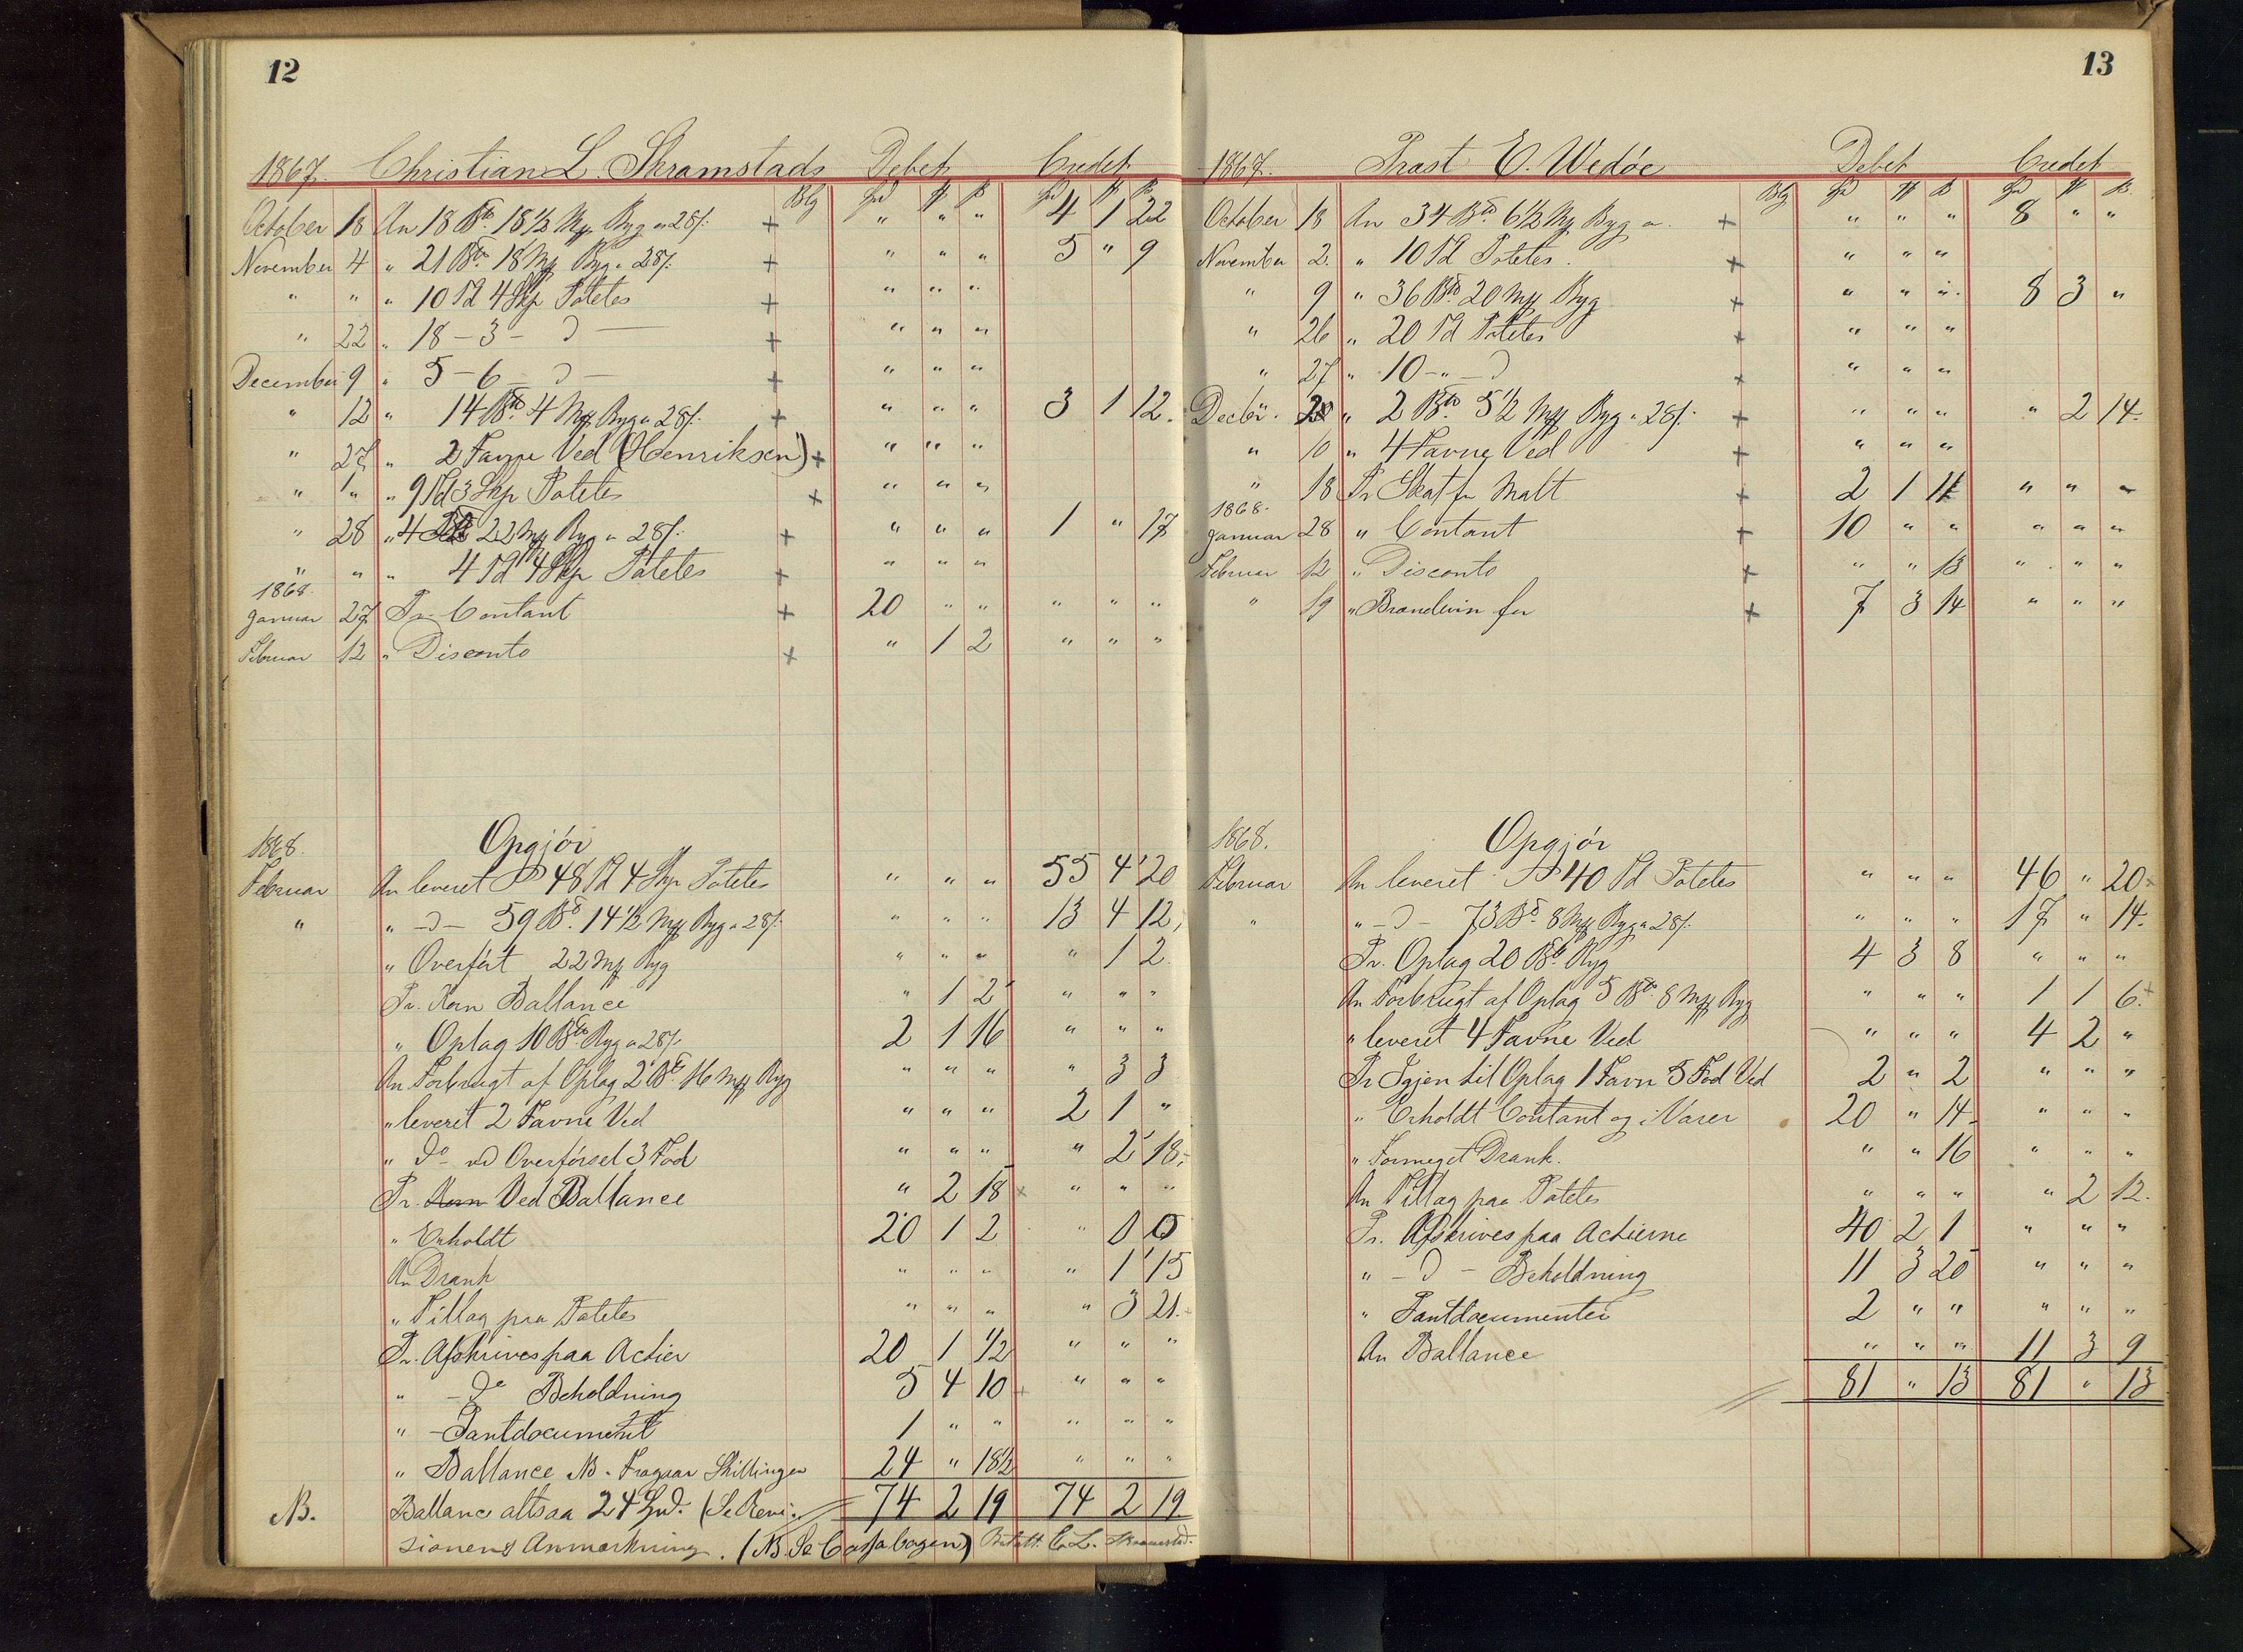 12
1867. Christian L. Skramstads Debet Credet
Blg Spd
October 18 An 18 Btt 18 1/2 Mk Byg a 28/: + " " " 4 1 22
November 4 " 21 Btt 18 Mk Byg a 28/: + " " " 5 " 9
" " " 10 Td 4 Skp Potetes + " " "
" 22 " 18 - 3 - D - + " " "
December 9 " 5 - 6 - D - + " " "
" 12 " 14 Btt 4 Mk Byg a 28/: + " " " 3 1 12.
" 27 " 2 Favne Ved (Henriksen) + " " "
" " " 9 Td 3 Skp Potetes + " " "
" 28 " 4 22 Mk Byg a 28/: + " " " 1 " 17
" " " 4 Td 4 Skp Potetes + " " "
1868.
Januar 27 Pr Contant + 20 " " " " "
Februar 12 " Disconto + " 1 2 " " "
1868. Opgjör
Februar An leveret 48 Td 4 Skp Potetes " " " 55 4 20
" " - D - 59 Bt 14 1/2 Mk Byg a 28/: " " " 13 4 12
" Overført 22 Mk Byg " " " " 1 2
Pr. Korn Ballance " 1 2 " " "
" Oplag 10 Btt Byg a 28/: 2 1 16 " " "
An Forbrugt af Oplag 2 Bt 16 Mk Byg " " " " 3 3
" leveret 2 Favne Ved " " " 2 1 "
" Do ved Overförsel 3 Fod " " " " 2 18
Pr. Korn Ved Ballance " 2 18 " " "
" Erholdt 20 1 2 " 0 0
An Drank " " " " 1 15
" Tillag paa Potetes " " " " 3 21
Pr. Afskrives paa Actier 20 1 1/2 " " "
" - Do Beholdning 5 4 10 " " "
" - Pantdocument 1 " " " " "
" Ballance NB. Fragaar Skillingen 24 " 18 1/2 " " "
NB. Ballanc altsaa 24 Spd. (Se Revi- 74 2 19 74 2 19
sionens Anmærkning. (NB. Se Cassabogen) Betalt C. L. Skramstad.
13
1867. Trast E. Wedöe Debet Credet
Blg Spd
October 18 An 34 Btt 6 1/2 Mk Byg a. + " " " 8 " "
November 2. " 10 Td Potetes. + " " "
" 9 " 36 Btt 20 Mk Byg + " " " 8 3 "
" 26 " 20 Td Potetes + " " "
" 27 " 10 - " - D + " " "
Decbr. " 2 Btt 5 1/2 Mk Byg a 28/: + " " " " 2 14.
" 10 " 4 Favne Ved + " " "
" 18 Pr Skat for Malt + 2 1 " " "
1868.
Januar 28 " Contant + 10 " " " " "
Februar 12 " Disconto + " " 13 " " "
" 19 " Brandevin for + 7 3 14 " " "
1868. Opgjör
Februar An leveret 40 Td Potetes " " " 46 " 20
" " - D - 73 Bt 8 Mk Byg a 28/: " " " 17 " 14.
Pr. Oplag 20 Btt Byg 4 3 8 " " "
An Forbrugt af Oplag 5 Btt 8 Mk Byg " " " 1 1 6.
" leveret 4 Favne Ved " " " 4 2 "
Pr Igjen til Oplag 1 Favn 5 Fod Ved 2 " 2 " " "
" Erholdt Contant og i Varer 20 " 14 " " "
" Formeget Drank. " " 16 " " "
An Tillag paa Potetes " " " " 2 12.
Pr. Afskrives paa Actierne 40 2 1 " " "
" - D - Beholdning 11 3 20 " " "
" Pantdocumenter 2 " " " " "
An Ballance " " " 11 3 9
81 " 13 81 " 13